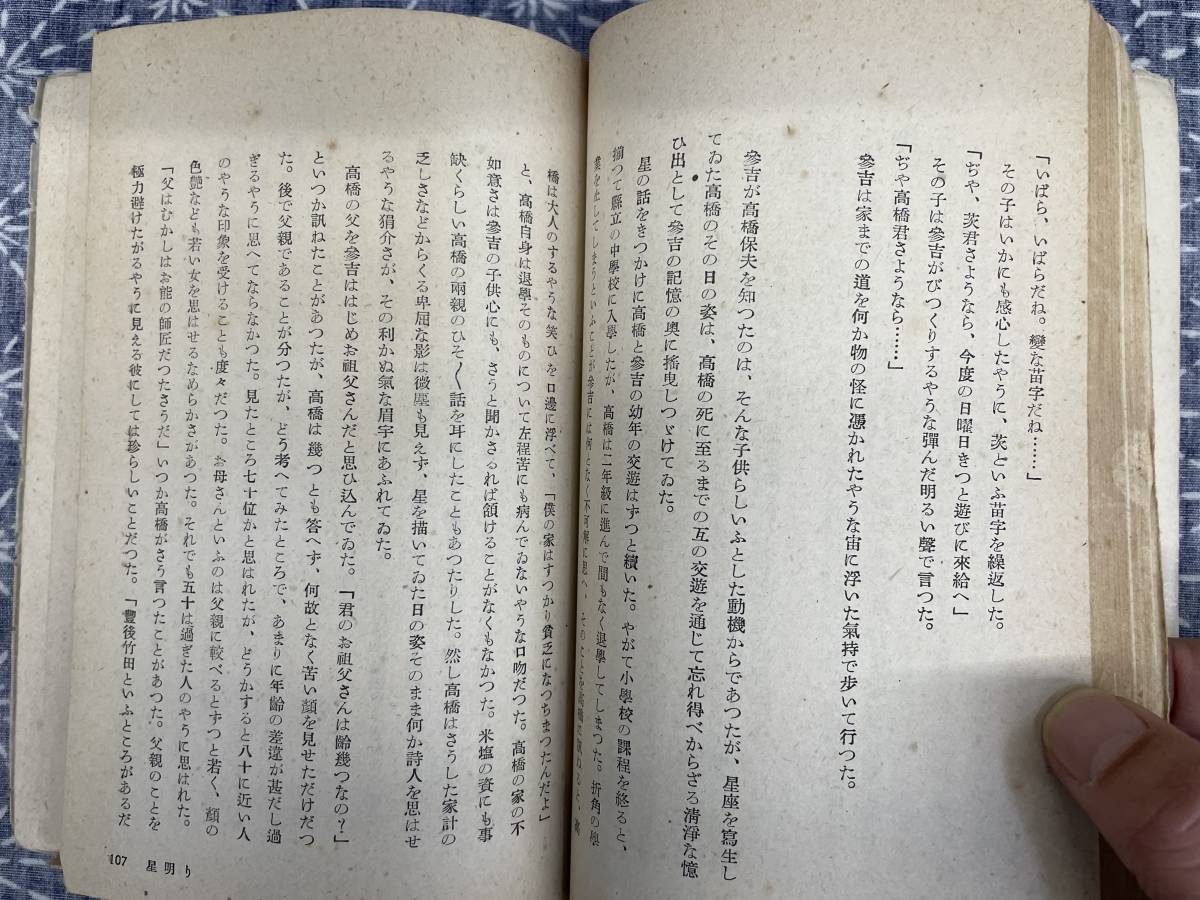 「いばら、いばらだね。變な苗字だね……」
その子はいかにも感心したやうに、茨といふ苗字を繰返した。
「ぢや、茨君さようなら、今度の日曜日きつと遊びに來給へ」
その子は參吉がびつくりするやうな彈んだ明るい聲で言つた。
「ぢや高橋君さようなら……」
參吉は家までの道を何か物の怪に憑かれたやうな宙に浮いた氣持で歩いて行つた。
參吉が高橋保夫を知つたのは、そんな子供らしいふとした動機からであつたが、星座を寫生し
てゐた高橋のその日の姿は、高橋の死に至るまでの互の交遊を通じて忘れ得べからざる清淨な憶
ひ出として參吉の記憶の奧に搖曳しつゞけてゐた。
星の話をきつかけに高橋と參吉の幼年の交遊はずつと續いた。やがて小學校の課程を終ると、
揃つて縣立の中學校に入學したが、高橋は二年級に進んで間もなく退學してしまつた。折角の學
業を廢してしまうといふことが參吉には何となく不可解に思へ、そのことを高橋に訊ねると、高
橋は大人のするやうな笑ひを口邊に浮べて、「僕の家はすつかり貧乏になつちまつたんだよ」
と、高橋自身は退學そのものについて左程苦にも病んでゐないやうな口吻だつた。高橋の家の不
如意さは參吉の子供心にも、さうと聞かさるれば頷けることがなくもなかつた。米塩の資にも事
缺くらしい高橋の兩親のひそ〱話を耳にしたこともあつたりした。然し高橋はさうした家計の
乏しさなどからくる卑屈な影は微塵も見えず、星を描いてゐた日の姿そのまま何か詩人を思はせ
るやうな狷介さが、その利かぬ氣な眉宇にあふれてゐた。
高橋の父を參吉ははじめお祖父さんだと思ひ込んでゐた。「君のお祖父さんは齡幾つなの？」
といつか訊ねたことがあつたが、高橋は幾つとも答へず、何故となく苦い顏を見せただけだつ
た。後で父親であることが分つたが、どう考へてみたところで、あまりに年齡の差違が甚だし過
ぎるやうに思へてならなかつた。見たところ七十位かと思はれたが、どうかすると八十に近い人
のやうな印象を受けることも度々だつた。お母さんといふのは父親に較べるとずつと若く、顏の
色艶なども若い女を思はせるなめらかさがあつた。それでも五十は過ぎた人のやうに思はれた。
「父はむかしはお能の師匠だつたさうだ」いつか高橋がさう言つたことがあつた。父親のことを
極力避けたがるやうに見える彼にしては珍らしいことだつた。「豐後竹田といふところがあるだ
107 星明り